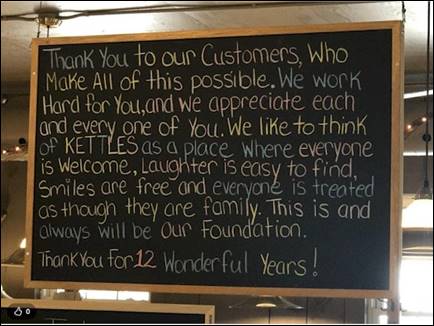 Thank You to our Customers, Who
Make All of this possible. We work
Hard for You, and we appreciate each
and every one of You. We like to think
of KETTLES as a place where everyone
is Welcome, Laughter is easy to find,
Smiles are free and everyone is treated
as though they are family. This is and
always will be Our Foundation.
Thank You for 12 Wonderful Years!
0